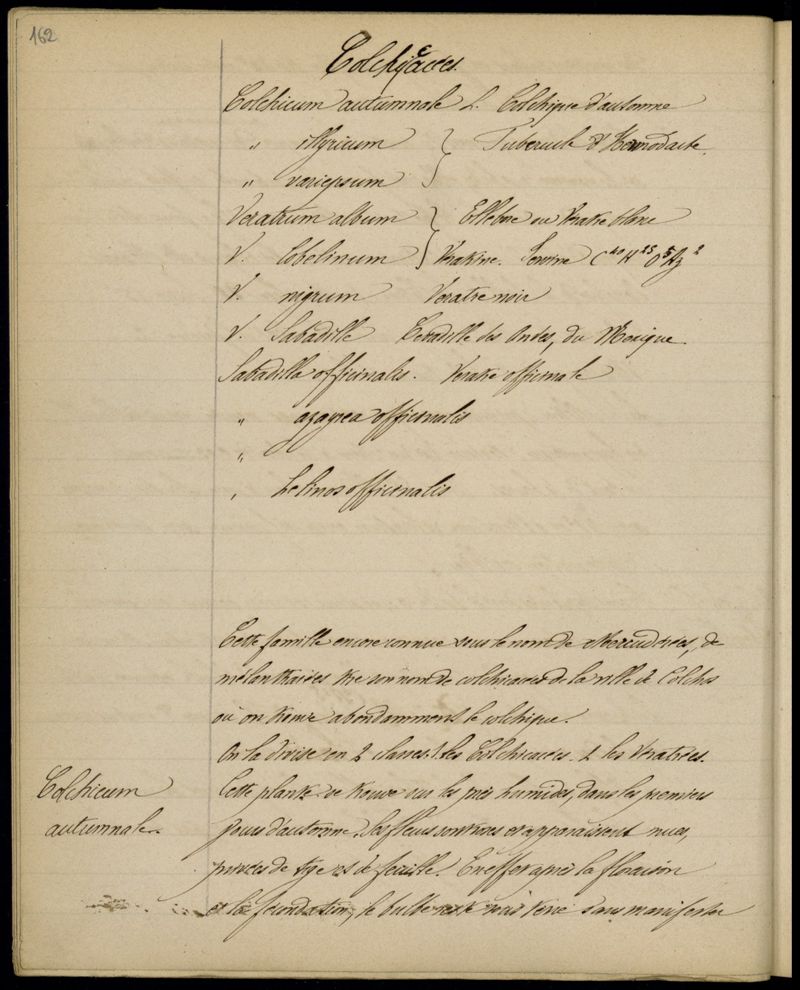 162
Colchicacées
Colchicum autumnale L. Colchique d'automne
" illyricum } Tubercule d'Hermodacte.
" variegsum }
Veratrum album } Ellébore ou Veratre blanc
V. lobelinum } Veratrine. C⁴⁰ H²⁵ O⁵ Az²
V. nigrum Veratre noir
V. Sabadille Cevadille des Andes, du Mexique.
Sabadilla officinalis. Veratre officinale
" azagrea officinalis
"
, Helinos officinalis
Cette famille encore connue sous le nom de de
mélanthacées tire son nom de colchicacées de la ville de Colchos
où on trouve abondamment le colchique.
On la divise en 2 classes. 1. les Colchicacées. 2 les Veratrées.
Colchicum
autumnale.
Cette plante se trouve sur les prés humides, dans les premiers
jours d'automne. Ses fleurs sont roses et apparaissent nues,
privées de tige et de feuille. En effet après la floraison
et la fécondation, le bulbe reste sans manifester